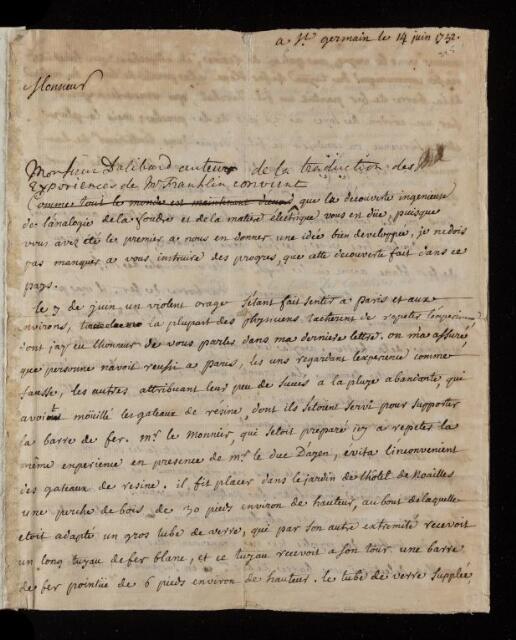 a St. germain le 14 juin 1752.
Monsieur
Monsieur Dalibard auteur de la traduction des
Experiences de Mr Franklin convient
Comme tout le monde est maintenant que la decouverte ingenieuse
de l'analogie de la foudre et de la matiere électrique vous en düe, puisque
vous avez été le premier a nous en donner une idée bien developpée, je ne dois
pas manquer a vous instruire des progres, que cette decouverte fait dans ce
pays.
le 7 de juin un violent orage s'étant fait sentir a Paris et aux
environs, la plupart des physiciens tacherent de repeter l'experience
dont j'ay eu l'honneur de vous parler dans ma derniere lettre. on m'a assuré,
que personne n'avoit reussi a Paris, les uns regardant l'experience comme
fausse, les autres attribuant leur peu de succes a la pluye abondante, qui
avoit moüillé les gateaux de resine, dont ils s'etoient servi pour supporter
la barre de fer. mr. le Monnier, qui s'etoit preparé icy a repeter la
même experience en presence de mr. le duc Dayen, evita l'inconvenient
des gateaux de resine. il fit placer dans le jardin de l'hôtel de Noailles
une perche de bois de 30 pieds environ de hauteur, au bout de laquelle
etoit adapté un gros tube de verre, qui par son autre extremité recevoit
un long tuyau de fer blanc, et ce tuyau recevoit a son tour une barre
de fer pointüe de 6 pieds environ de hauteur. le tube de verre suppleé,